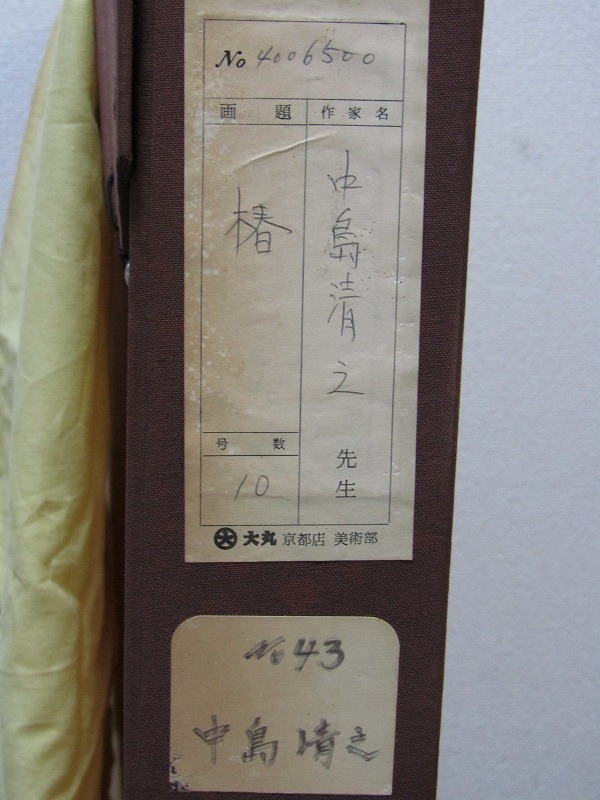 No 4006500
作家名
中島清之 先生
画題
椿
号数
10
大丸 京都店 美術部
No 43
中島清之